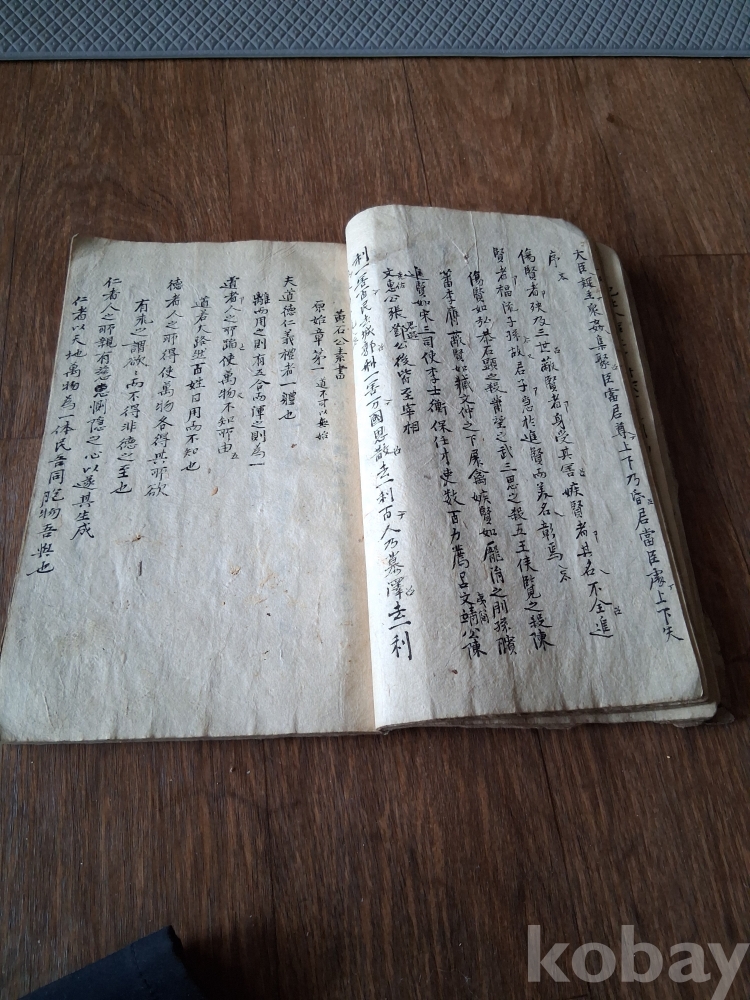 大臣疑主衆姦集聚臣當君尊上下乃昏君當臣處上下失
序
傷賢者殃及三世蔽賢者身受其害嫉賢者其名不全進
賢者福流子孫故君子急於進賢而美名彰焉
傷賢如弘恭石顯之殺蕭望之武三思之殺五王侯覽之殺陳
蕃李膺蔽賢如臧文仲之下展禽嫉賢如龐涓之刖孫臏
進賢如宋三司使李士衡保任才吏數百乃薦呂文靖公陳
文惠公張鄧公後皆至宰相
利一害百民去城郭利一害万國思散去一利百人乃慕澤去一利
黃石公素書
原始章第一 道不可以無始
夫道德仁義禮者一體也
離而用之則有五合而渾之則為一
道者人之所蹈使萬物不知所由
道若大路然百姓日用而不知也
德者人之所得使萬物各得其所欲
有求之謂欲而不得非德之至也
仁者人之所親有慈惠惻隱之心以遂其生成
仁者以天地萬物為一体民吾同胞物吾與也
kobay